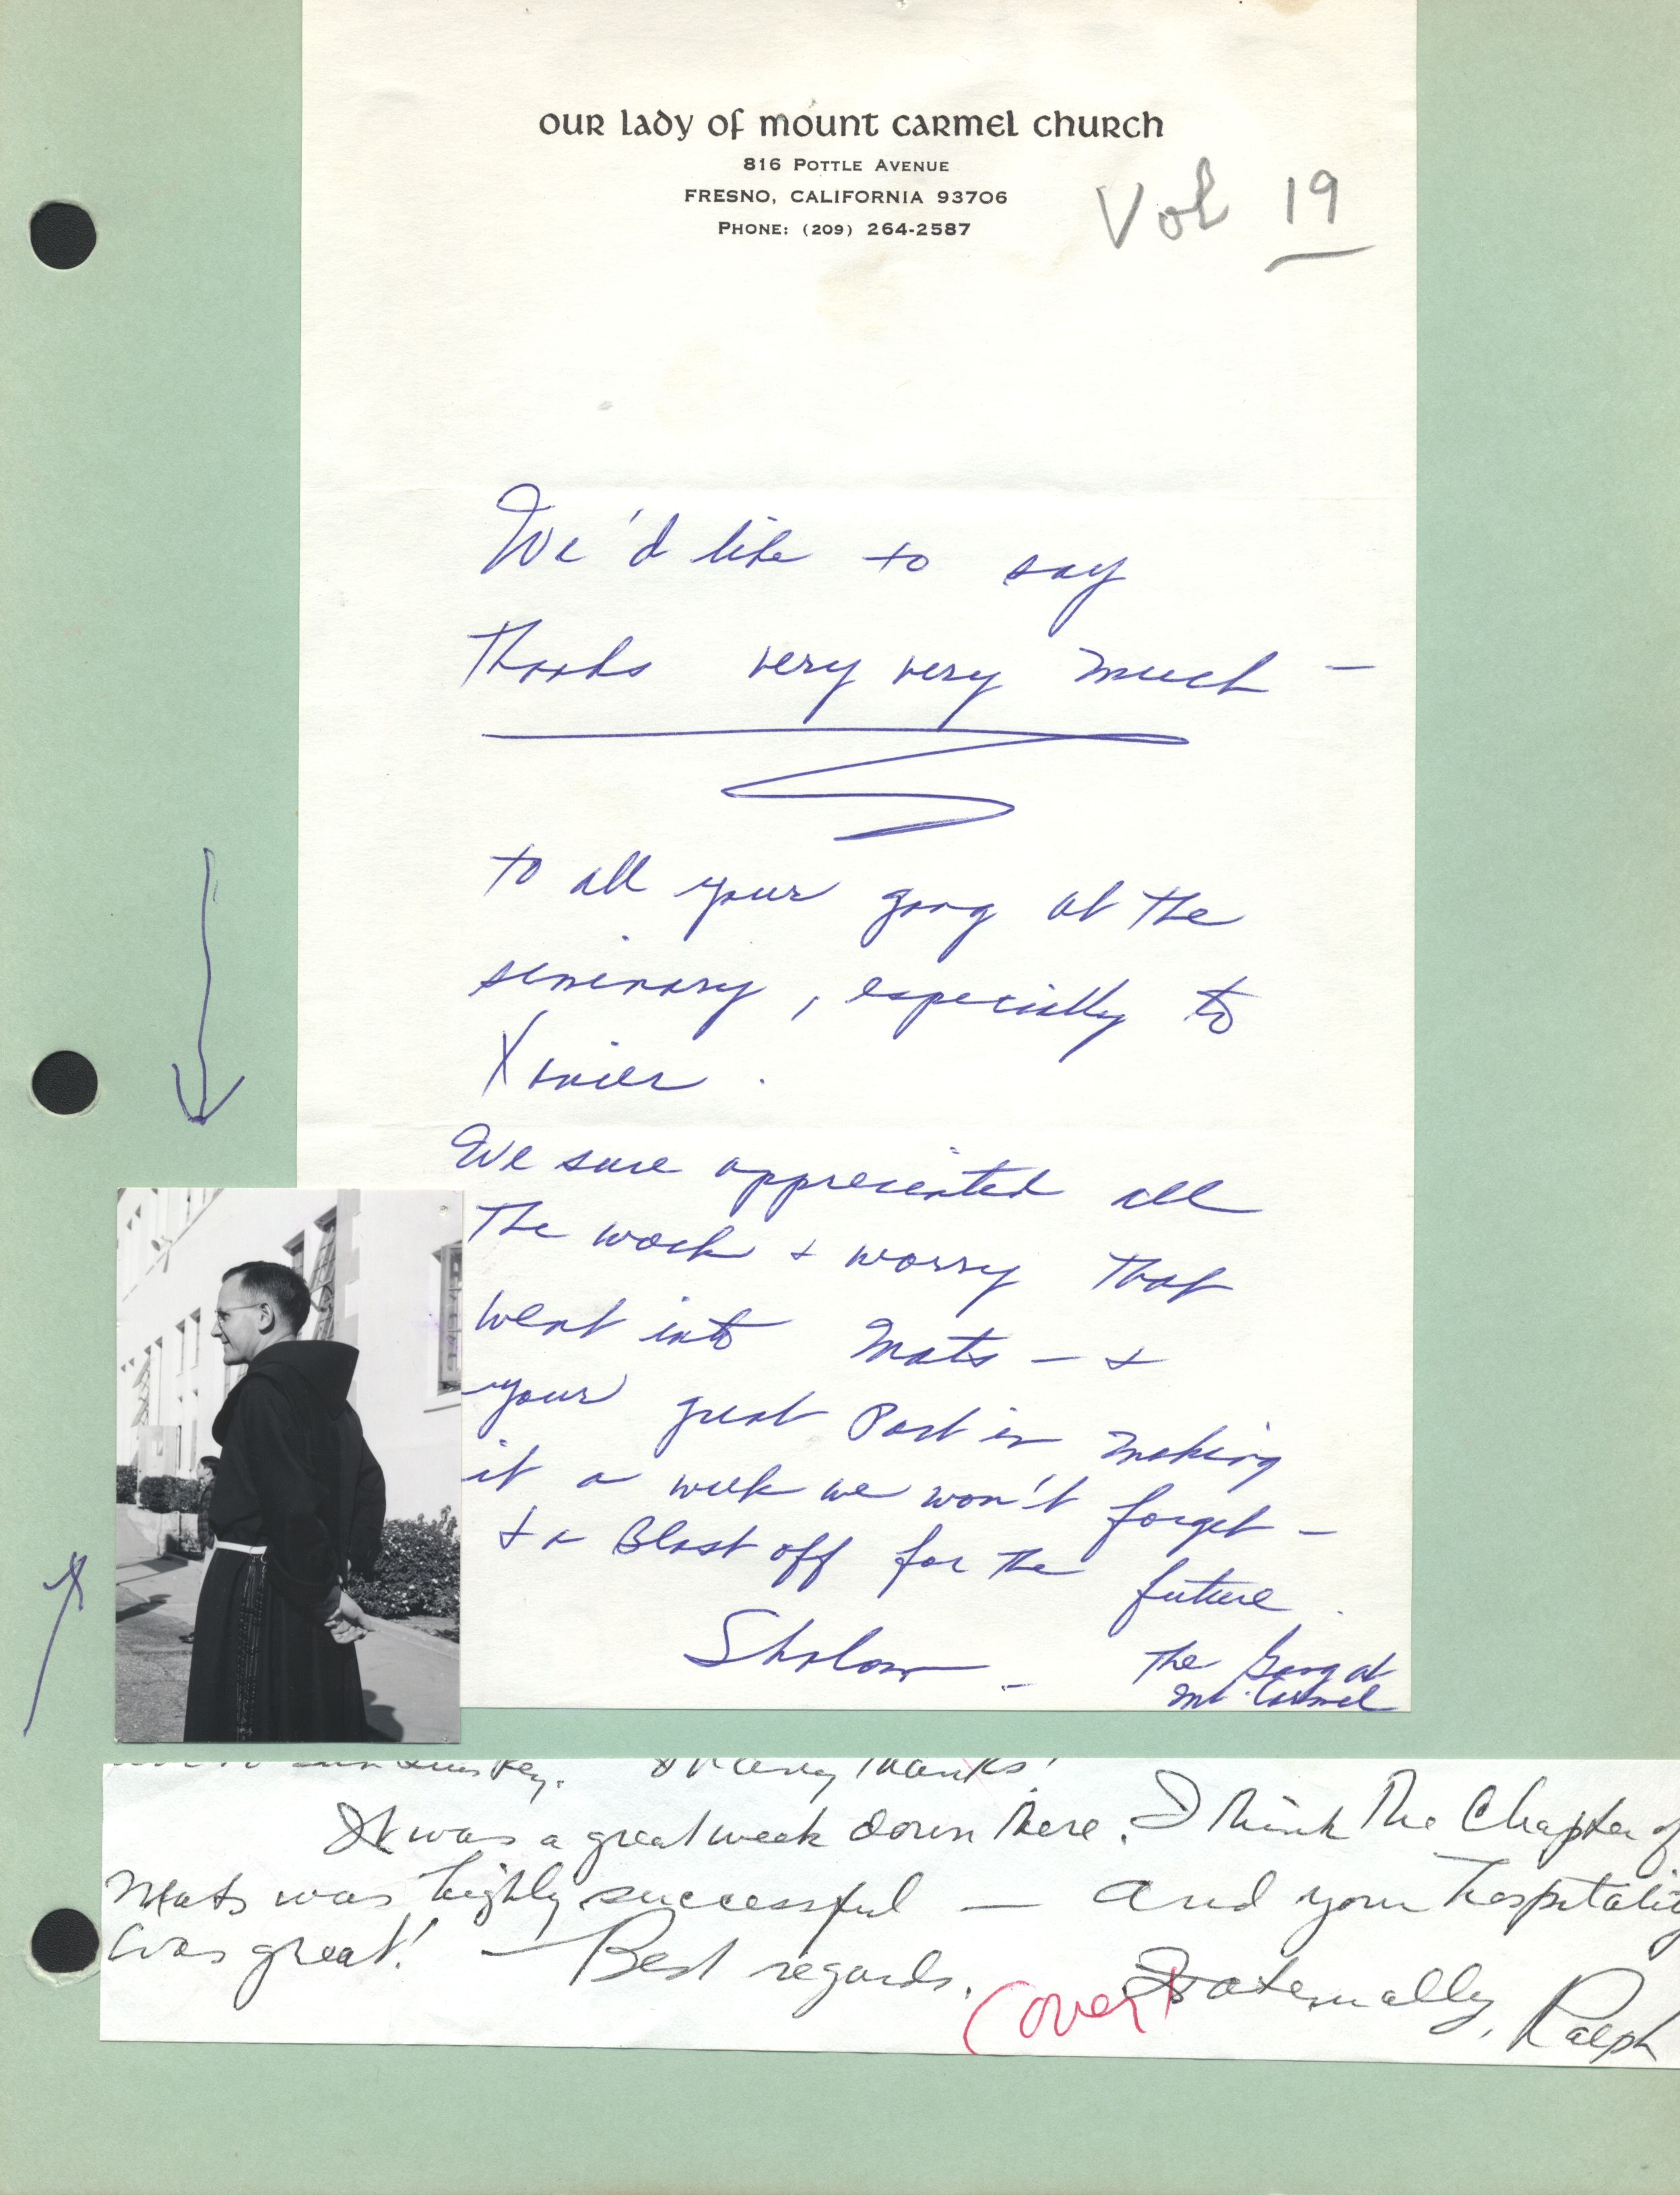 OUR LADY OF MOUNT CARMEL CHURCH
816 POTTLE AVENUE
FRESNO, CALIFORNIA 93706
PHONE: (209) 264-2587
Vol 19
We'd like to say
thanks very very much -
to all your gang at the
seminary, especially to
Xavier.
We sure appreciated all
the work & worry that
went into Mats - &
your great Part in making
it a week we won't forget -
& a Blast off for the future.
Shalom -
The Gang at
Mt. Carmel
Many thanks!
It was a great week down there. I think the Chapter of
Mats was highly successful — and your hospitality
was great! — Best regards. Fraternally, Ralph
(over)